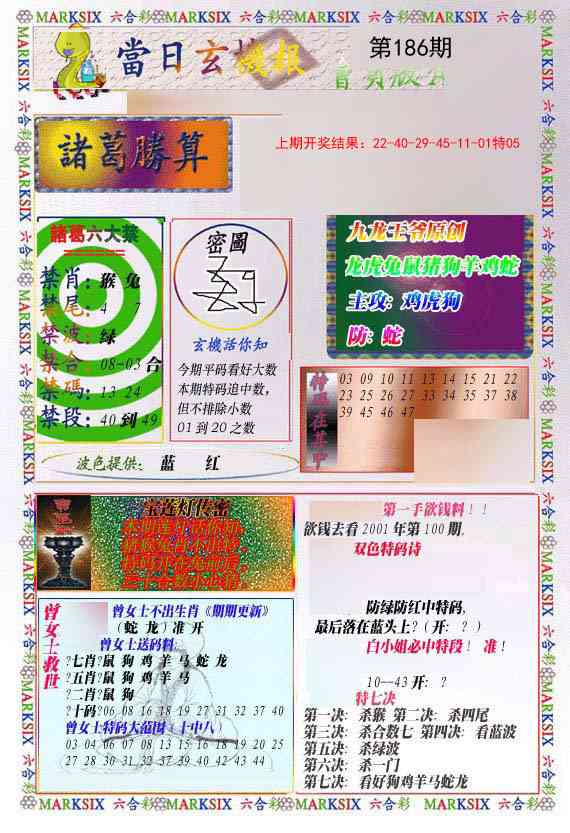 MARKSIX 六合彩 MARKSIX 六合彩 MARKSIX 六合彩 MARKSIX 六合彩 MARKSIX
當日玄機报
第186期
諸葛勝算
上期开奖结果：22-40-29-45-11-01特05
諸葛六大禁
禁肖：猴 兔
禁尾：4 7
禁波：绿
禁合：08-03合
禁碼：13 24
禁段：40到49
密圖
玄機活你知
今期平码看好大数
本期特码追中数，
但不排除小数
01到20之数
九龙王爷原创
龙虎兔鼠猪狗羊鸡蛇
主攻：鸡虎狗
防：蛇
特码在其中
03 09 10 11 13 14 15 21 22
23 25 26 27 33 34 35 37 38
39 45 46 47
波色提供： 蓝 红
宝莲灯传密
第一手欲钱料！！
欲钱去看2001年第100期，
双色特码诗
防绿防红中特码，
最后落在蓝头上?（开：？）
白小姐必中特段！ 准！
10--43开：？
特七决
第一决：杀猴 第二决：杀四尾
第三决：杀合数七 第四决：看蓝波
第五决：杀绿波
第六决：杀一门
第七决：看好狗鸡羊马蛇龙
曾女士救世
曾女士不出生肖《期期更新》
（蛇 龙）准 开
曾女士送码料:
?七肖?鼠 狗 鸡 羊 马 蛇 龙
?五肖?鼠 狗 鸡 羊 马
?二肖?鼠 狗
?十码?06 08 16 18 19 27 31 32 37 40
曾女士特码大范围﹝十中八﹞
03 04 06 07 08 13 15 16 18 19 20 25
27 28 30 31 32 37 39 40 42 43 44
MARKSIX 六合彩 MARKSIX 六合彩 MARKSIX 六合彩 MARKSIX 六合彩 MARKSIX